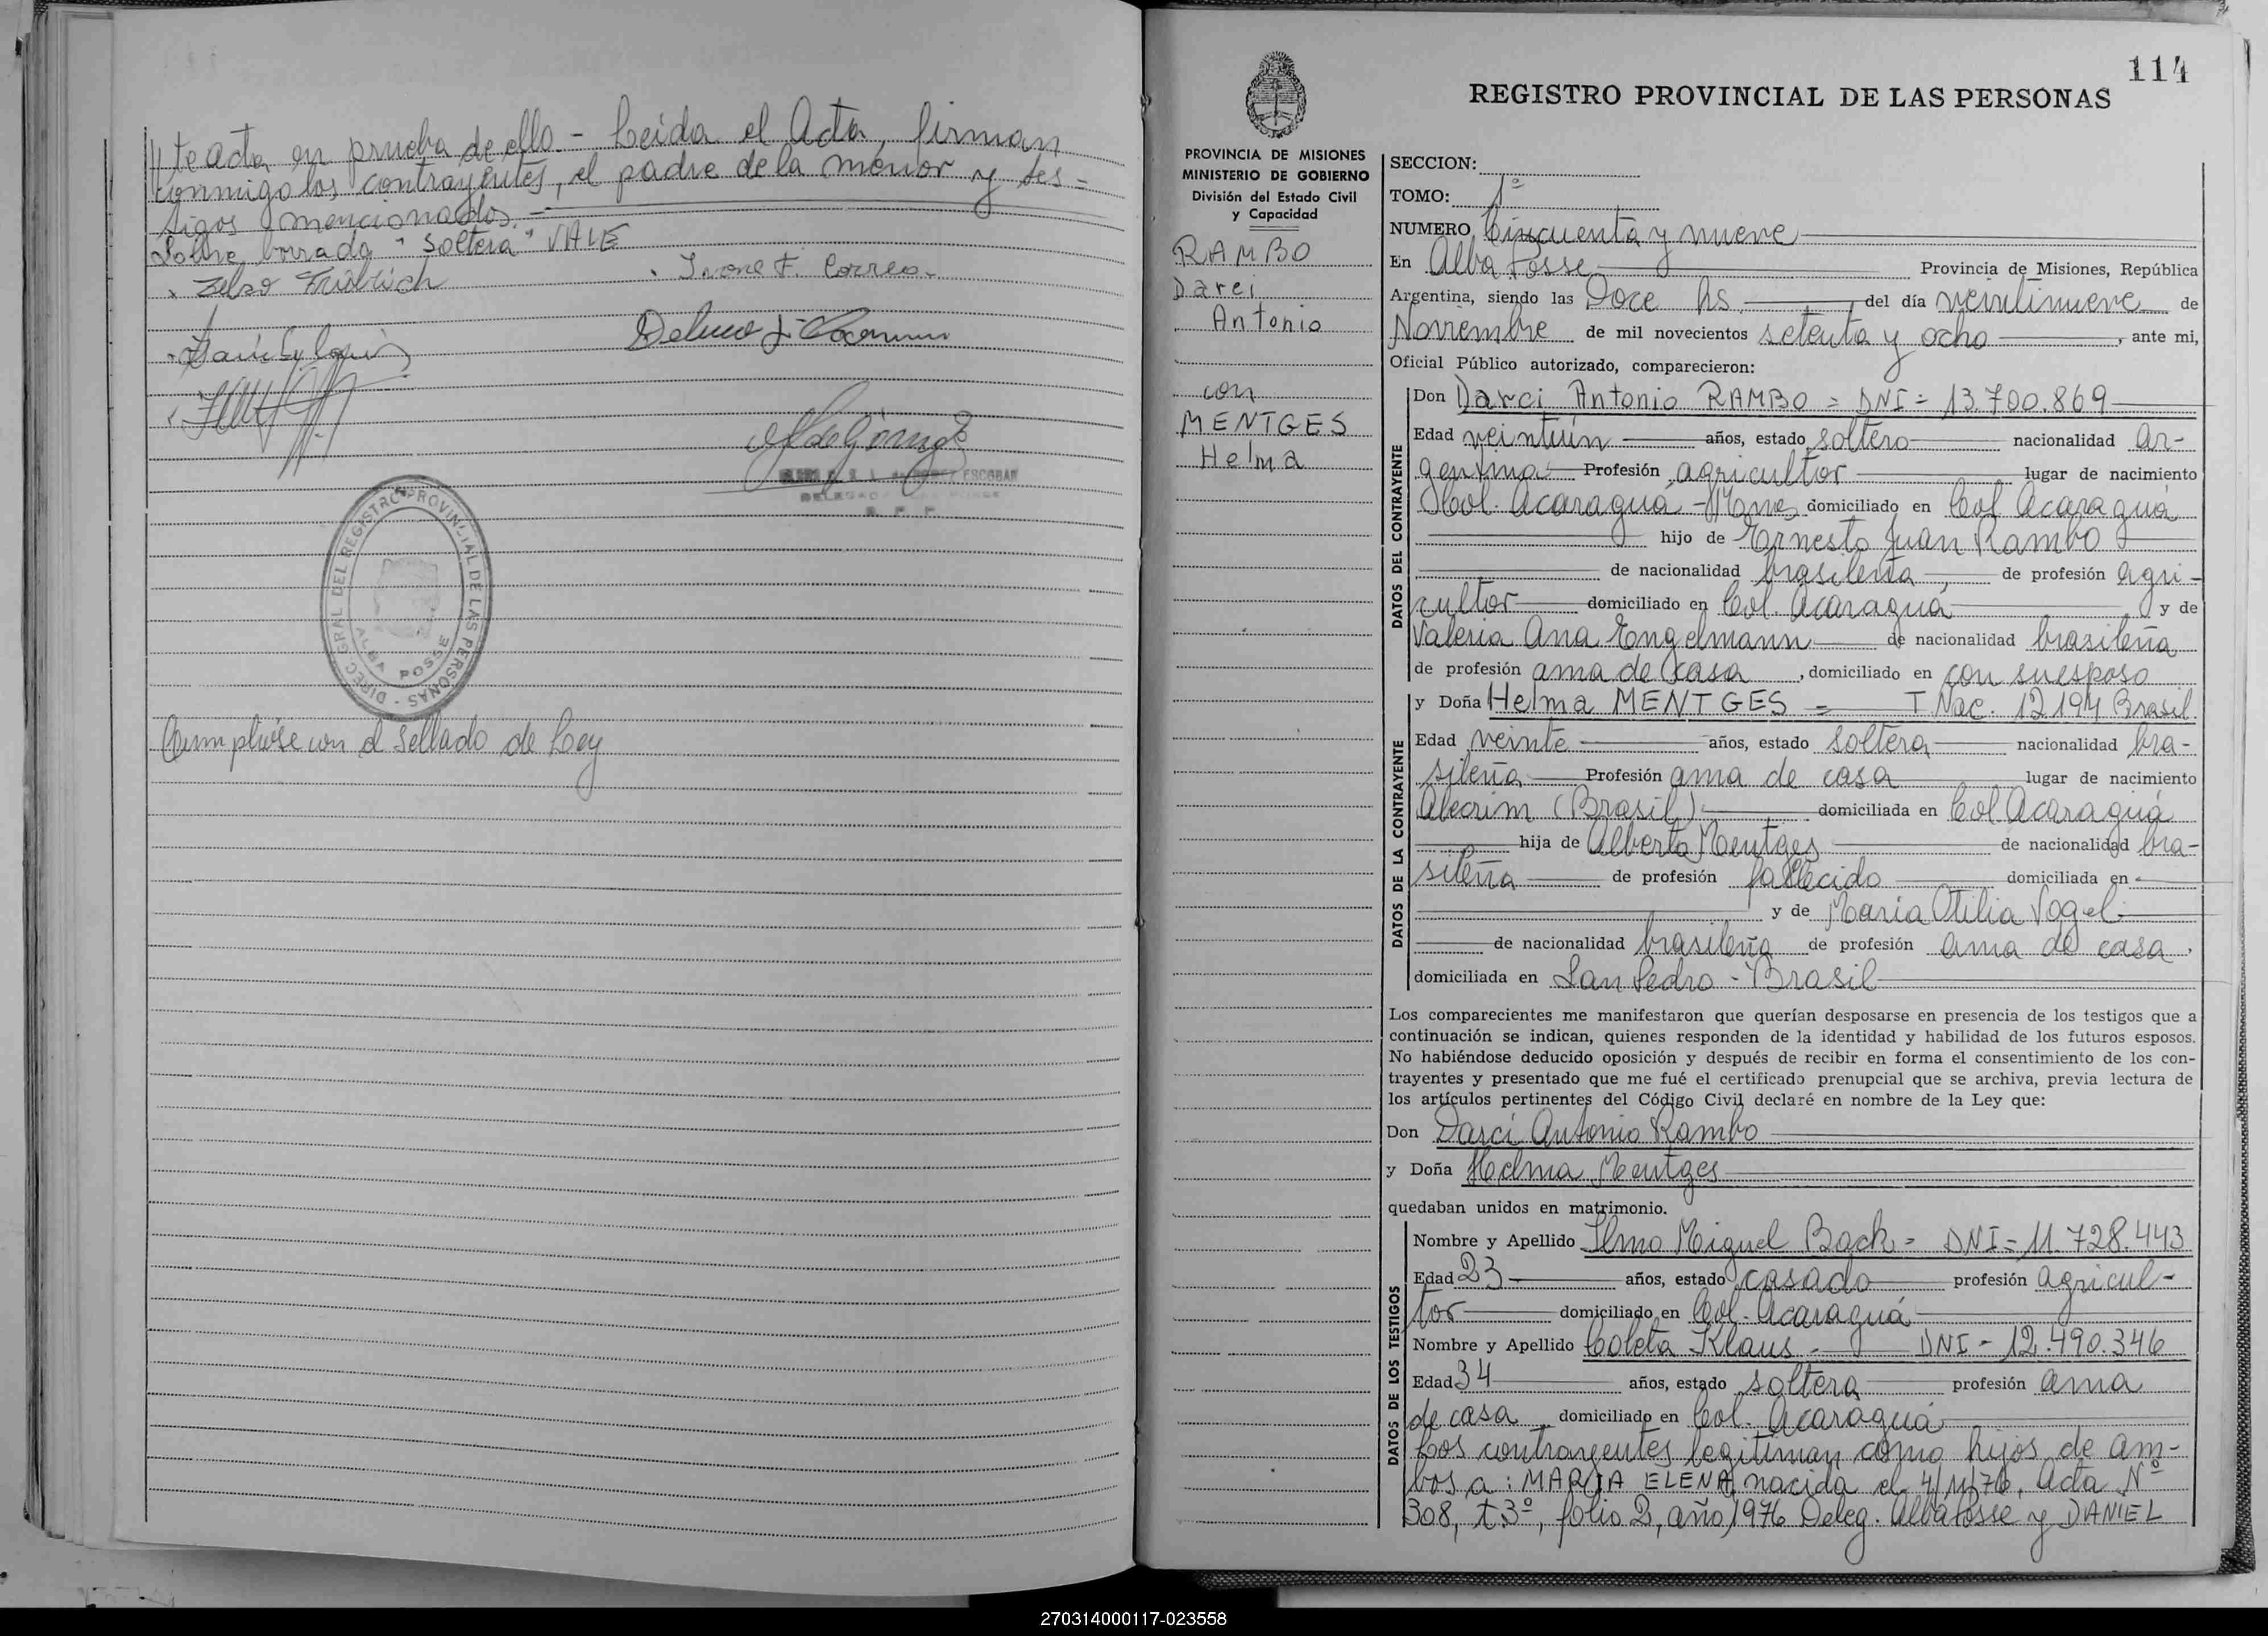 te acta en prueba de ello - Leida el Acta, firman
conmigo los contrayentes, el padre de la menor y tes-
tigos mencionados. -
Sobre borrado "soltera" VALE
Zelso Fridrich
Ivone F. Correa.
ESCOBAR
DIREC. GRAL DEL REGISTRO PROVINCIAL DE LAS PERSONAS -
ALBA POSSE
Cumplióse con el Sellado de Ley
114
REGISTRO PROVINCIAL DE LAS PERSONAS
PROVINCIA DE MISIONES
MINISTERIO DE GOBIERNO
División del Estado Civil
y Capacidad
RAMBO
Darci
Antonio
con
MENTGES
Helma
SECCION:
TOMO: 1º
NUMERO Cincuenta y nueve
En Alba Posse Provincia de Misiones, República
Argentina, siendo las Doce hs. del día veintinueve de
Noviembre de mil novecientos setenta y ocho , ante mi,
Oficial Público autorizado, comparecieron:
DATOS DEL CONTRAYENTE
Don Darci Antonio RAMBO = DNI = 13.700.869
Edad veintiún años, estado soltero nacionalidad ar-
gentina Profesión agricultor lugar de nacimiento
Col. Acaraguá - Mnes domiciliado en Col Acaraguá
hijo de Ernesto Juan Rambo
de nacionalidad brasileña , de profesión agri-
cultor domiciliado en Col. Acaraguá y de
Valeria Ana Engelmann de nacionalidad brasileña
de profesión ama de casa , domiciliado en con su esposo
DATOS DE LA CONTRAYENTE
y Doña Helma MENTGES = T Nac. 12194 Brasil.
Edad veinte años, estado soltera nacionalidad bra-
sileña Profesión ama de casa lugar de nacimiento
Alecrim (Brasil) domiciliada en Col Acaraguá
hija de Alberto Mentges de nacionalidad bra-
sileña de profesión fallecido domiciliada en -
y de María Otilia Vogel
de nacionalidad brasileña de profesión ama de casa ,
domiciliada en San Pedro - Brasil
Los comparecientes me manifestaron que querían desposarse en presencia de los testigos que a
continuación se indican, quienes responden de la identidad y habilidad de los futuros esposos.
No habiéndose deducido oposición y después de recibir en forma el consentimiento de los con-
trayentes y presentado que me fué el certificado prenupcial que se archiva, previa lectura de
los artículos pertinentes del Código Civil declaré en nombre de la Ley que:
Don Darci Antonio Rambo
y Doña Helma Mentges
quedaban unidos en matrimonio.
DATOS DE LOS TESTIGOS
Nombre y Apellido Ilmo Miguel Back - DNI = 11.728.443
Edad 23 años, estado casado profesión agricul-
tor domiciliado en Col. Acaraguá
Nombre y Apellido Coleta Klaus - DNI - 12.490.346
Edad 34 años, estado soltera profesión ama
de casa , domiciliado en Col. Acaraguá
Los contrayentes legitiman como hijos de am-
bos a: MARIA ELENA nacida el 4/11/76, Acta Nº
308, t.3º, folio 2, año 1976 Deleg. Alba Posse y DANIEL
270314000117-023558